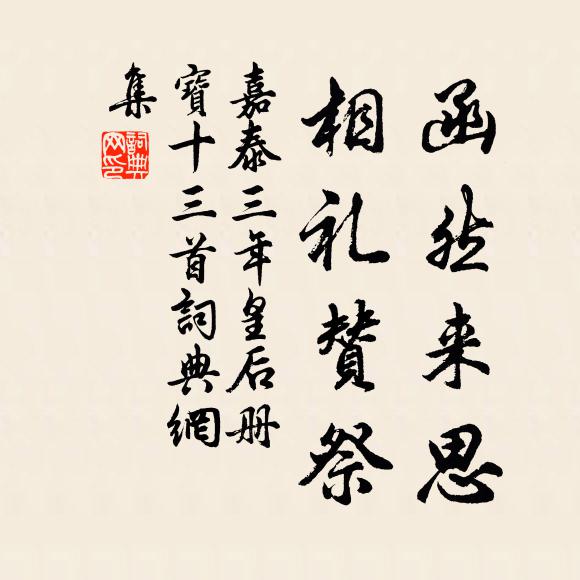 函然来思
相礼赞祭
嘉泰三年皇后册
寶十三首詞典網
集
詞典網印